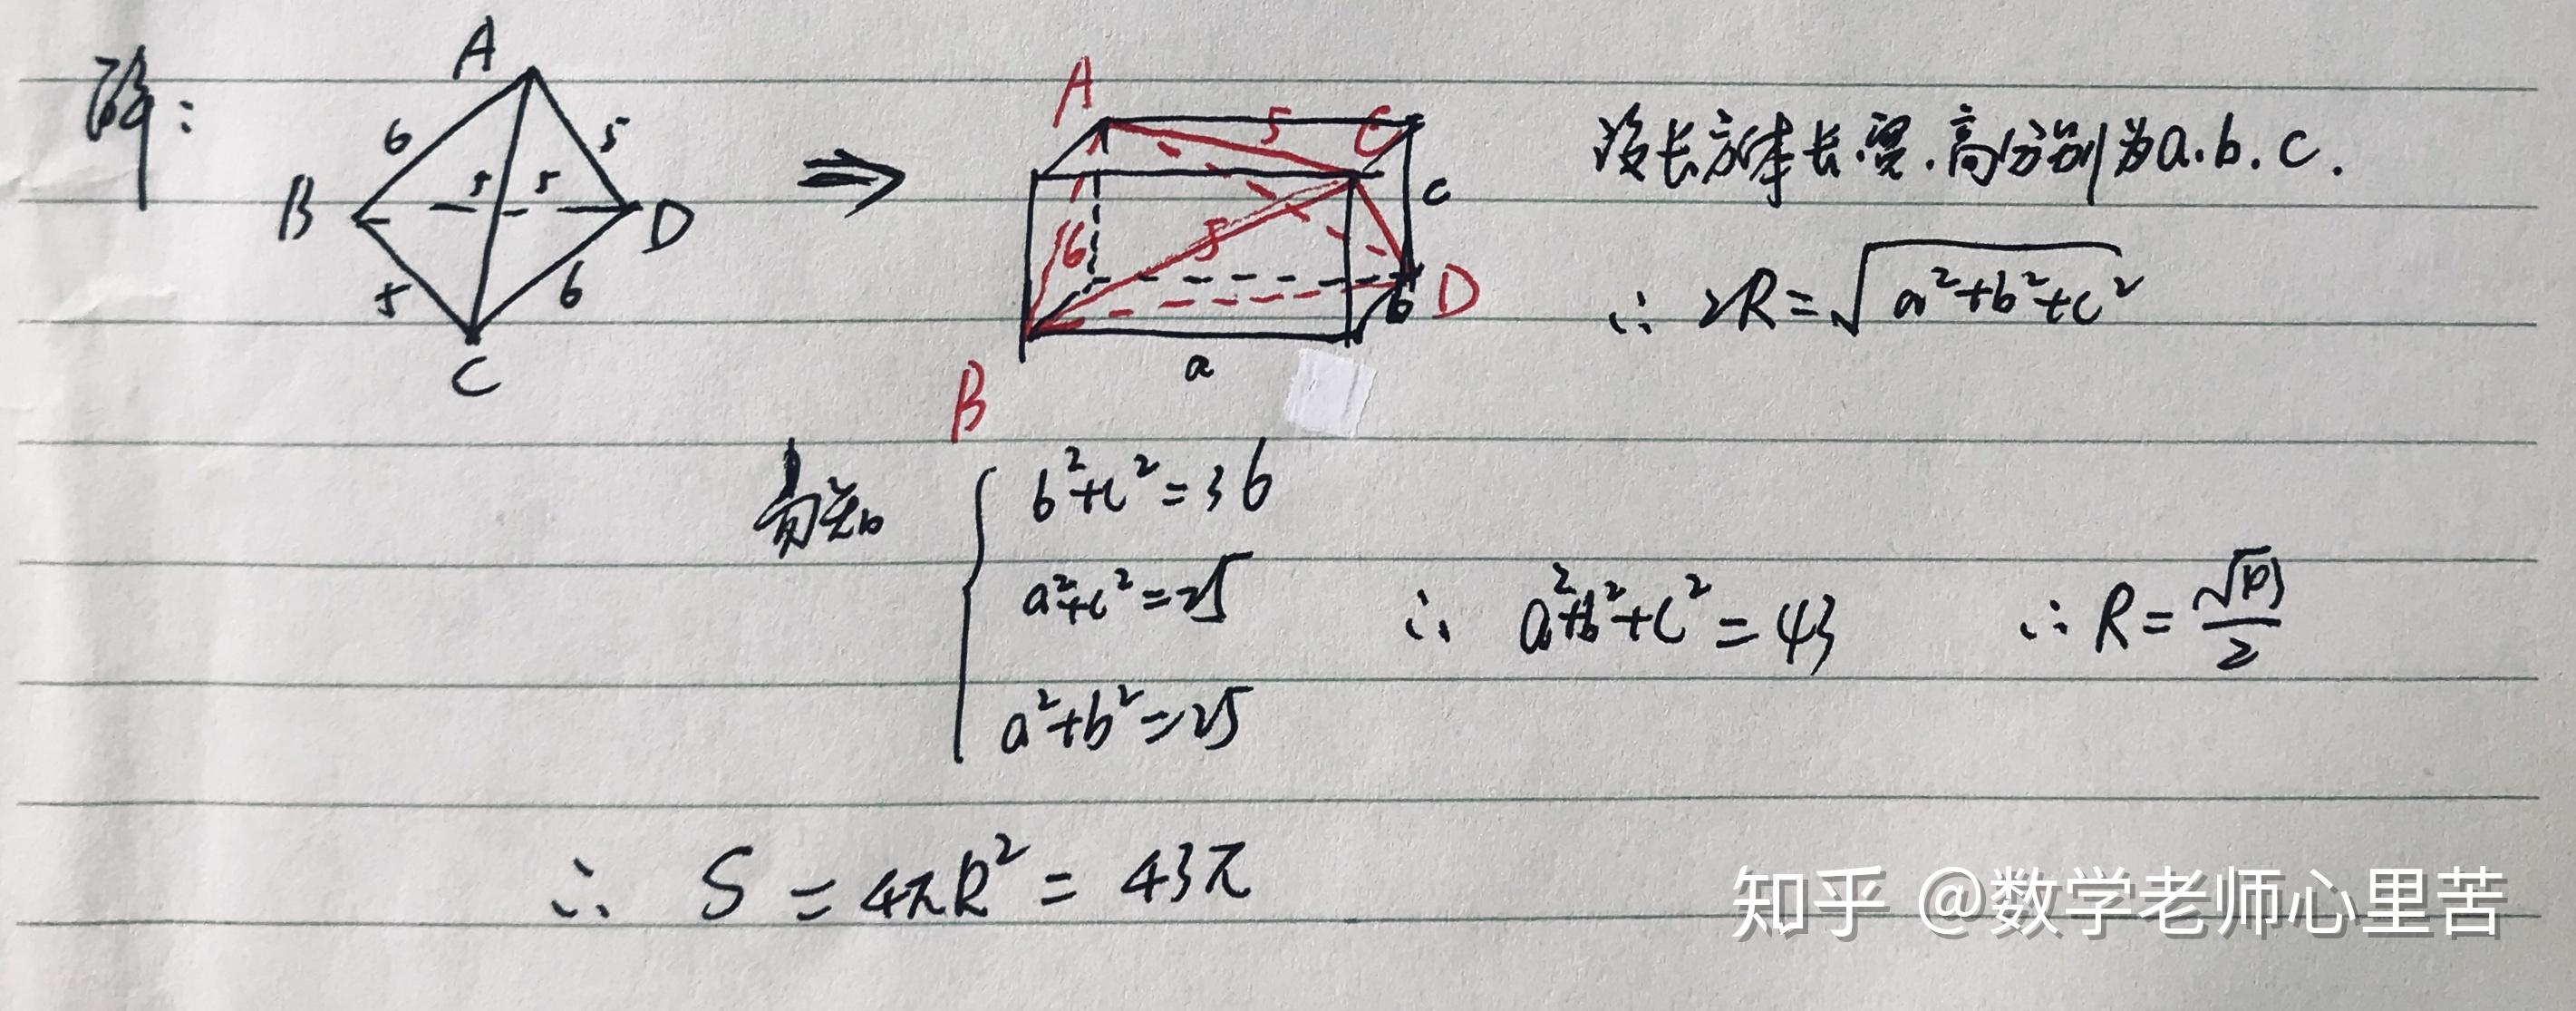 解:
A
6
5
B
5
5
D
5
6
C
⇒
A
5
C
c
6
5
b
D
a
B
设长方体长.宽.高分别为a.b.c.
∴ 2R=√(a²+b²+c²)
易知
b²+c²=36
a²+c²=25
a²+b²=25
∴ a²+b²+c²=43
∴ R=√43/2
∴ S=4πR²=43π
知乎 @数学老师心里苦